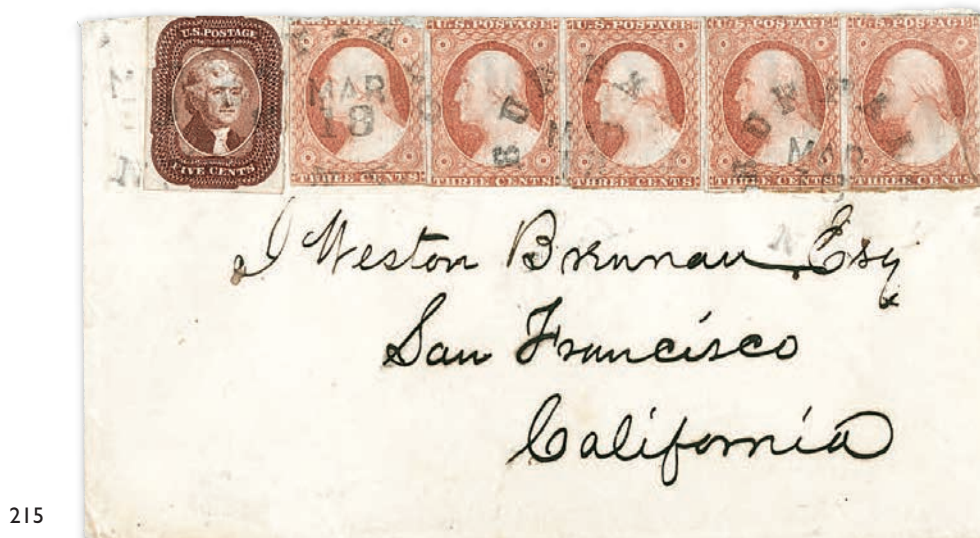 U.S. POSTAGE
FIVE CENTS
MAR
18
THREE CENTS
U.S. POSTAGE
THREE CENTS
U.S. POSTAGE
THREE CENTS
U.S. POSTAGE
THREE CENTS
MAR
U.S. POSTAGE
THREE CENTS
J Weston Brennan Esq
San Francisco
California
215